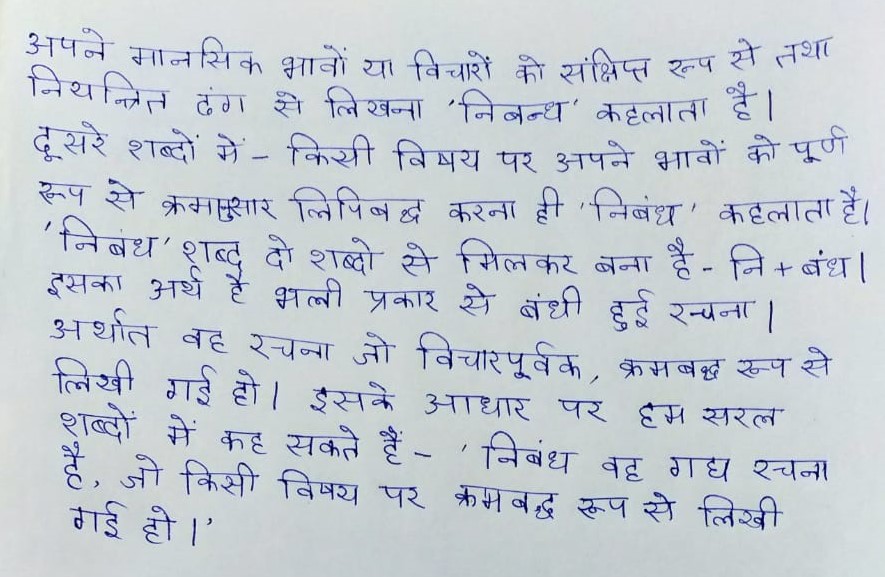 अपने मानसिक भावों या विचारों को संक्षिप्त रूप से तथा
नियन्त्रित ढंग से लिखना 'निबन्ध' कहलाता है।
दूसरे शब्दों में - किसी विषय पर अपने भावों को पूर्ण
रूप से क्रमानुसार लिपिबद्ध करना ही 'निबंध' कहलाता है।
'निबंध' शब्द दो शब्दो से मिलकर बना है - नि + बंध।
इसका अर्थ है भली प्रकार से बंधी हुई रचना।
अर्थात वह रचना जो विचारपूर्वक, क्रमबद्ध रूप से
लिखी गई हो। इसके आधार पर हम सरल
शब्दों में कह सकते हैं - 'निबंध वह गद्य रचना
है, जो किसी विषय पर क्रमबद्ध रूप से लिखी
गई हो।'